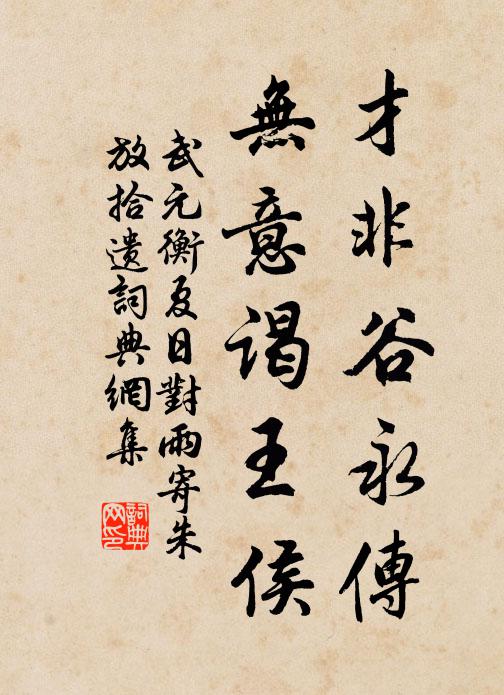 才非谷永傳
無意謁王侯
武元衡夏日對雨寄朱
放拾遺詞典網集
詞典
网印